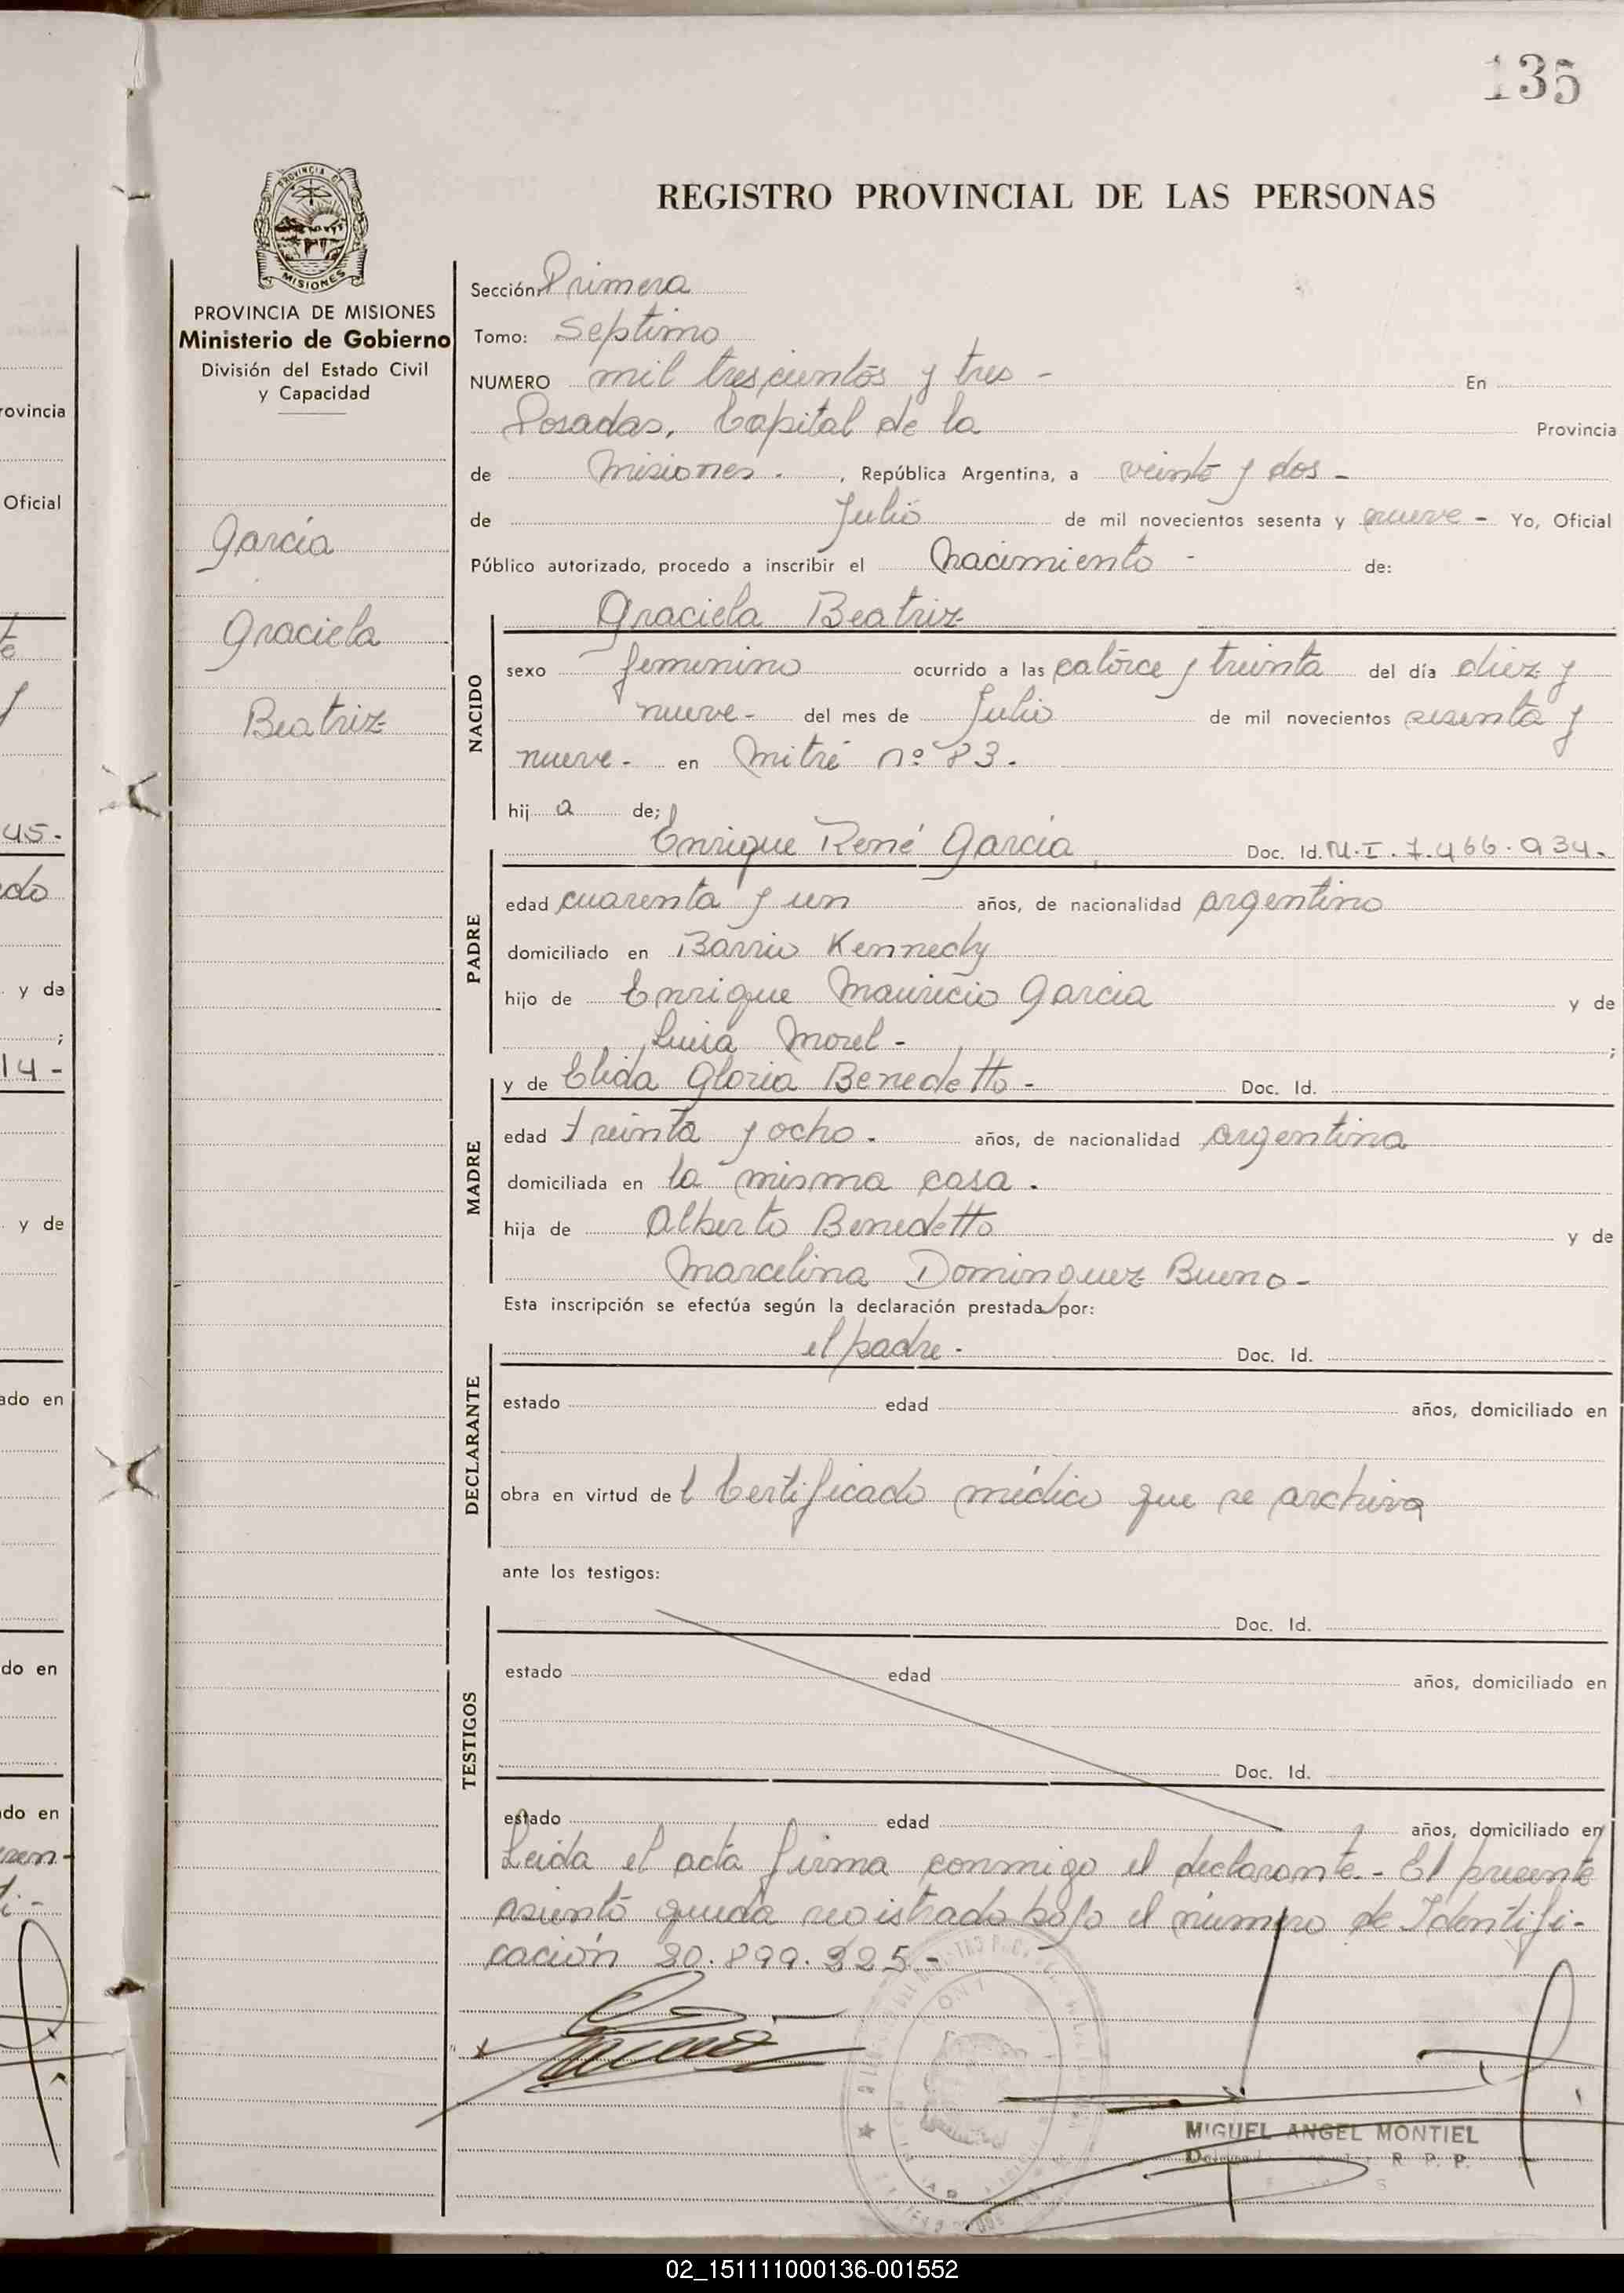 135
REGISTRO PROVINCIAL DE LAS PERSONAS
PROVINCIA DE MISIONES
Ministerio de Gobierno
División del Estado Civil
y Capacidad
García
Graciela
Beatriz
Sección: Primera
Tomo: Septimo
NUMERO mil trescientos y tres - En
Posadas, Capital de la Provincia
de Misiones. , República Argentina, a veinte y dos -
de Julio de mil novecientos sesenta y nueve - Yo, Oficial
Público autorizado, procedo a inscribir el Nacimiento - de:
Graciela Beatriz
NACIDO
sexo femenino ocurrido a las catorce y treinta del día diez y
nueve - del mes de Julio de mil novecientos sesenta y
nueve - en Mitre nº 83.
hij a de;
Enrique René García, Doc. Id. M.I. 7.466.934.
PADRE
edad cuarenta y un años, de nacionalidad argentino
domiciliado en Barrio Kennedy
hijo de Enrique Mauricio Garcia y de
Luisa Morel - ;
y de Elida Gloria Benedetto - Doc. Id.
MADRE
edad treinta y ocho. años, de nacionalidad argentina
domiciliada en la misma casa.
hija de Alberto Benedetto y de
Marcelina Dominguez Bueno -
Esta inscripción se efectúa según la declaración prestada por:
el padre - Doc. Id.
DECLARANTE
estado edad años, domiciliado en
obra en virtud de l Certificado médico que se archiva
ante los testigos:
TESTIGOS
Doc. Id.
estado edad años, domiciliado en
Doc. Id.
estado edad años, domiciliado en
Leida el acta firma conmigo el declarante. - El presente
asiento queda registrado bajo el número de Identifi-
cación 20.899.225 -
MIGUEL ANGEL MONTIEL
R. P. P.
rovincia
Oficial
45.-
do
y de
;
14 -
y de
ado en
do en
do en
02_151111000136-001552